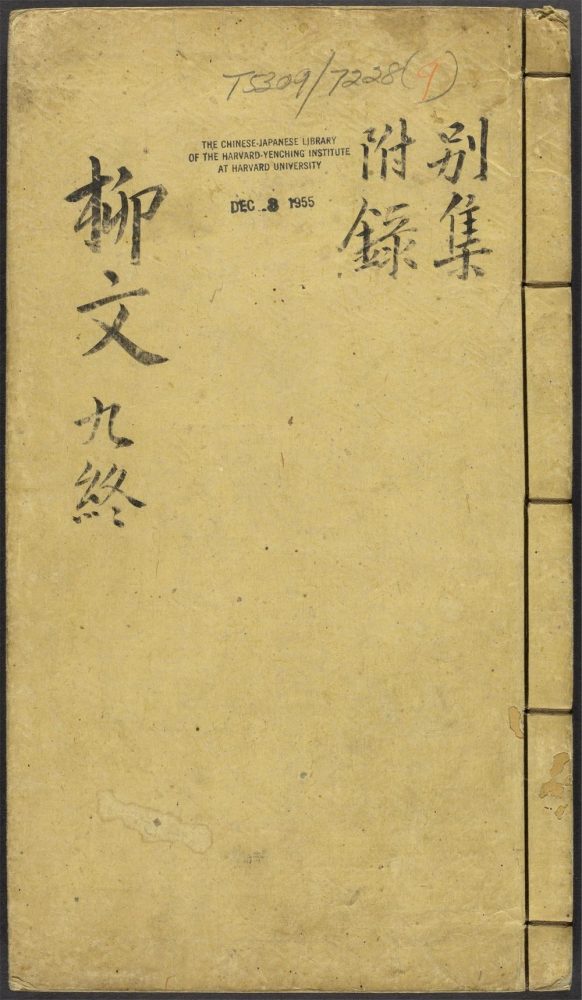 T5309/7228(9)
THE CHINESE-JAPANESE LIBRARY
OF THE HARVARD-YENCHING INSTITUTE
AT HARVARD UNIVERSITY
DEC 8 1955
别集
附錄
柳文 九終